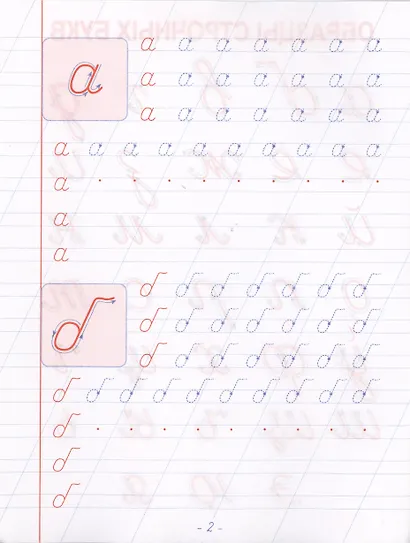 а
а а а а а а а
а а а а а а а
а а а а а а а
а а а а а а а а а а
а
а
а
б
б б б б б б б
б б б б б б б
б б б б б б б
б б б б б б б б б б
б
б
б
- 2 -